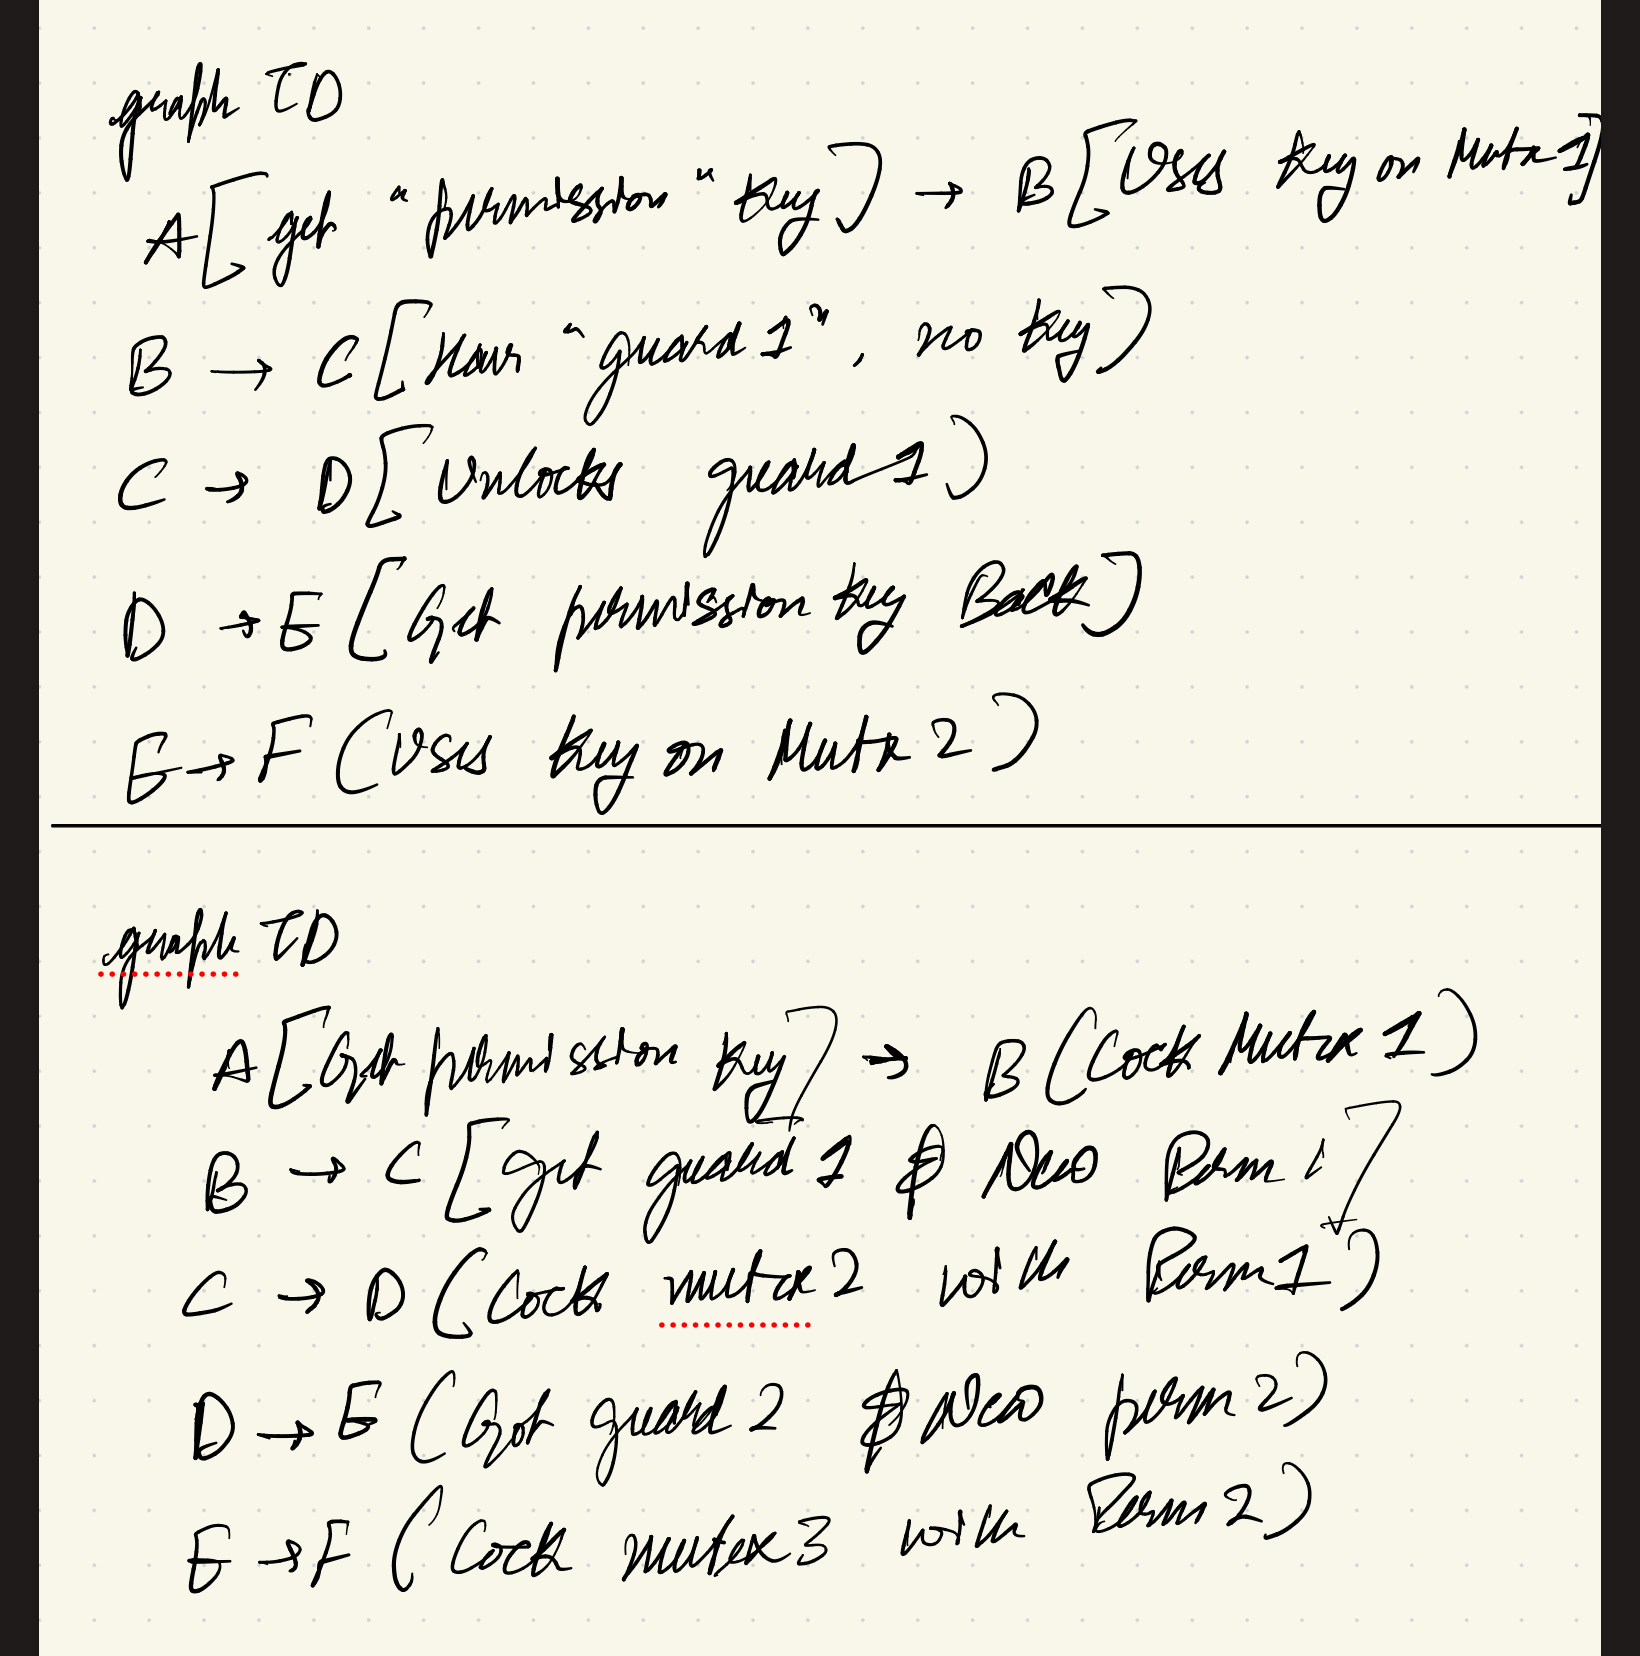 graph TD
A[get "permission" key] → B[Uses key on Mutex 1]
B → C[Have "guard 1", no key]
C → D[Unlocks guard 1)
D → E[Get permission key Back]
E → F(Uses key on Mutex 2)
graph TD
A[Get permission key] → B(Lock Mutex 1)
B → C[get guard 1 & New Perm 1]
C → D(Lock mutex 2 with Perm 1)
D → E(Got guard 2 & New perm 2)
E → F(Lock mutex 3 with Perm 2)